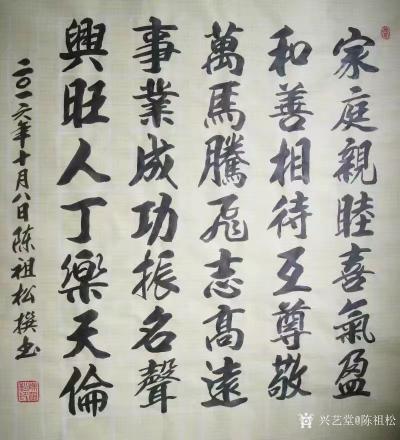 家庭親睦喜氣盈
和善相待互尊敬
萬馬騰飛志高遠
事業成功振名聲
興旺人丁樂天倫
二〇一六年十月八日陳祖松撰书
兴艺堂@陈祖松